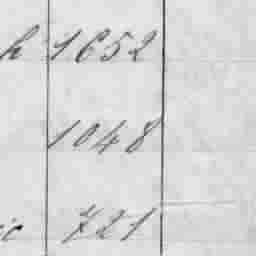 h 1652
1048
ic 721